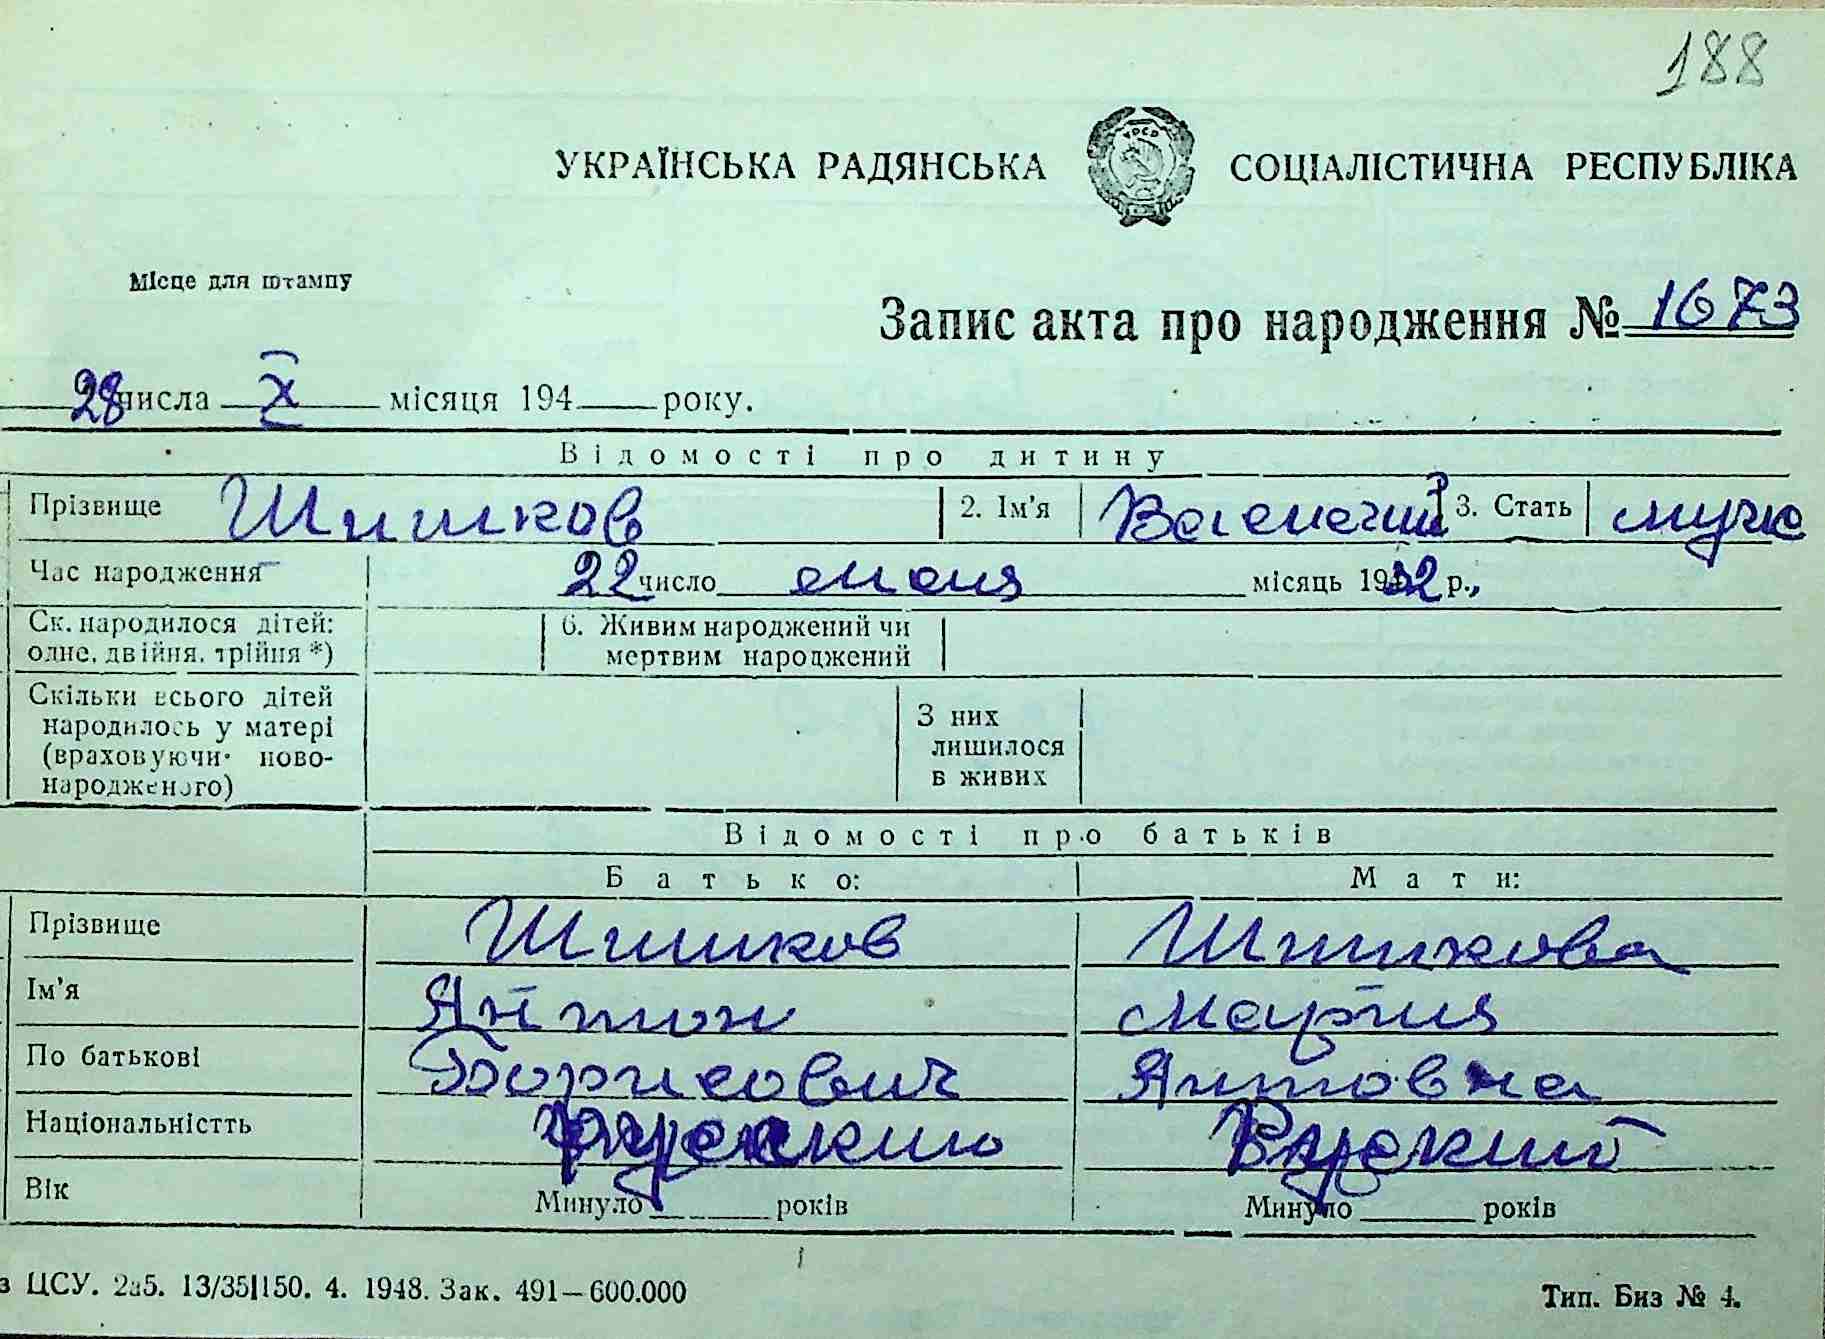 188
УКРАЇНСЬКА РАДЯНСЬКА СОЦІАЛІСТИЧНА РЕСПУБЛІКА
УРСР
Місце для штампу
Запис акта про народження № 1673
28 числа X місяця 194 року.
Відомості про дитину
Прізвище Шишков 2. Ім'я 3. Стать муж
Час народження 22 число мая місяць 1932 р.,
Ск. народилося дітей: 6. Живим народжений чи
одне, двійня, трійня *) мертвим народжений
Скільки всього дітей З них
народилось у матері лишилося
(враховуючи ново- в живих
народженого)
Відомості про батьків
Батько: Мати:
Прізвище Шишков Шишкова
Ім'я Антон Мария
По батькові Борисович Антовна
Національністть русский Русский
Вік Минуло років Минуло років
з ЦСУ. 2а5. 13/35|150. 4. 1948. Зак. 491—600.000 Тип. Биз № 4.